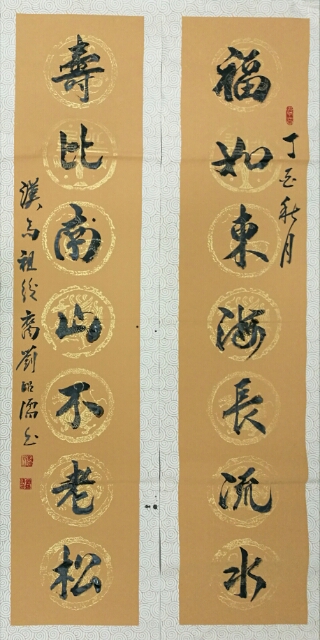 福如東海長流水
丁亥秋月
壽比南山不老松
漢高祖後裔劉昭儒書